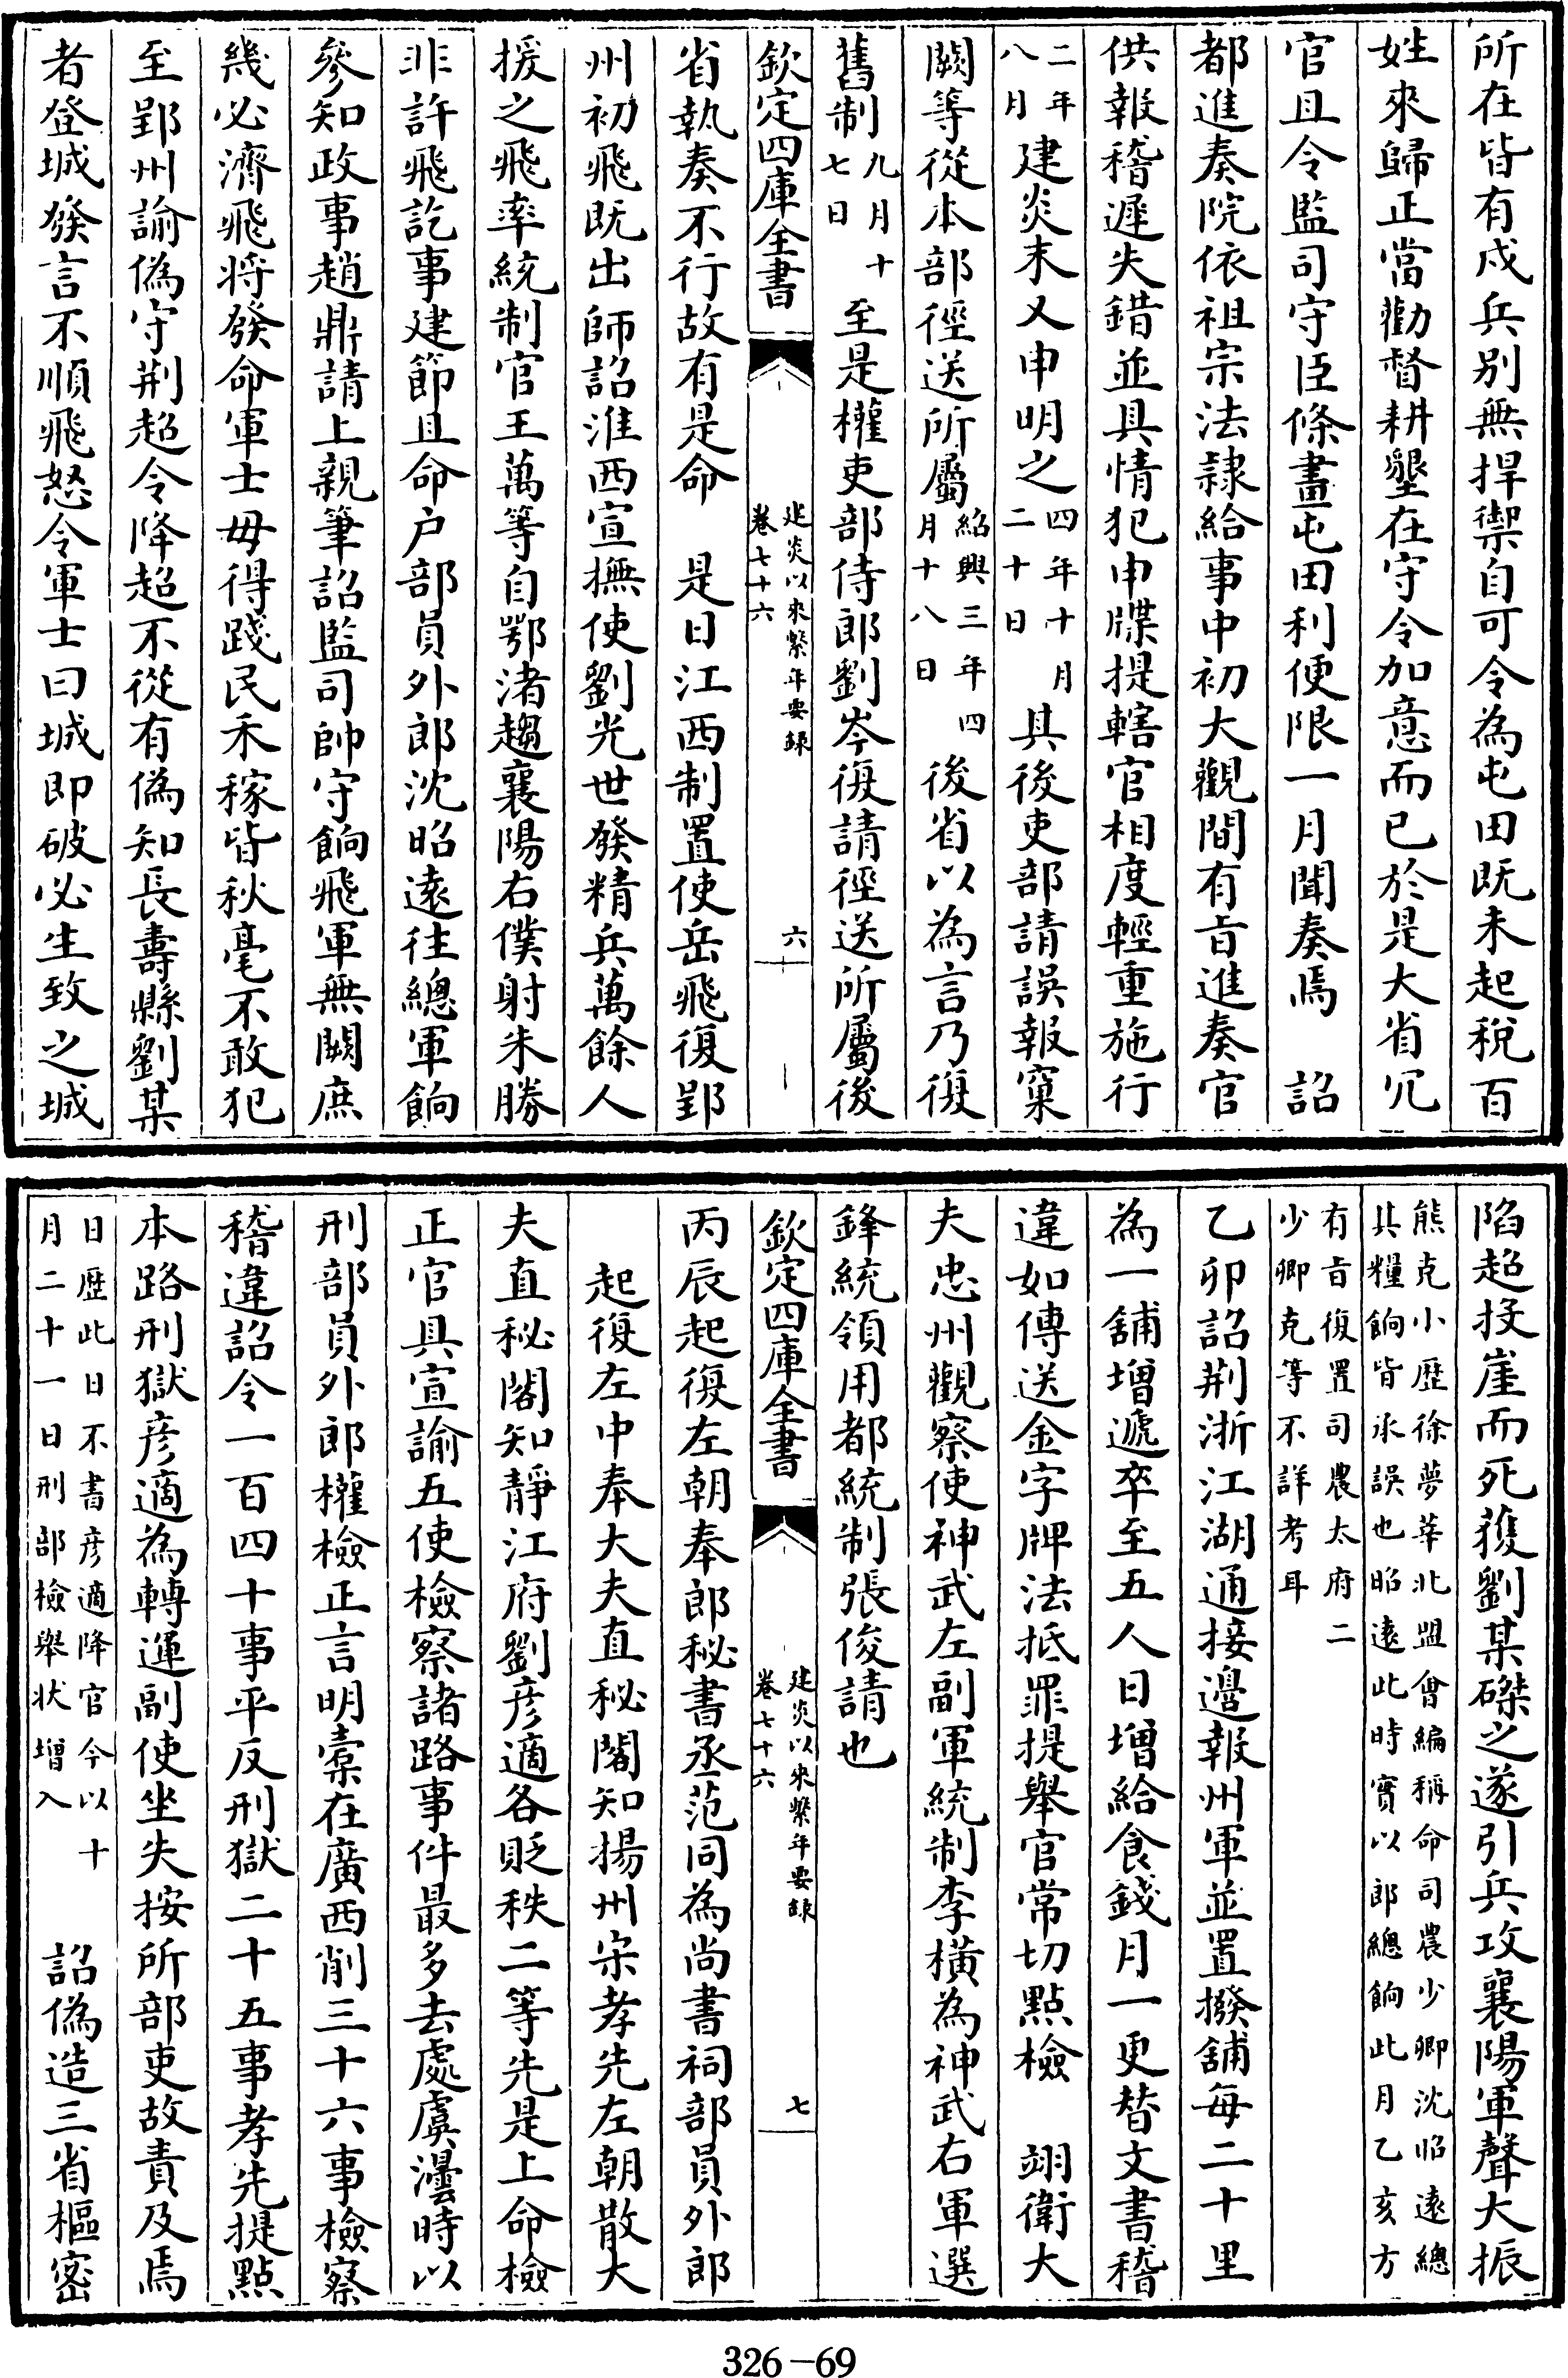 所在皆有戍兵别無捍禦自可令為屯田既未起稅百
姓來歸正當勸督耕墾在守令加意而已於是大省冗
官且令監司守臣條畫屯田利便限一月聞奏焉　詔
都進奏院依祖宗法隷給事中初大觀間有旨進奏官
供報稽遲失錯並具情犯申牒提轄官相度輕重施行
二年
八月
建炎末又申明之
四年十月
二十日
其後吏部請誤報窠
闕等從本部徑送所屬
紹興三年四
月十八日
後省以為言乃復
舊制
九月十
七日
至是權吏部侍郎劉岑復請徑送所屬後
欽定四庫全書
建炎以來繫年要録
卷七十六
六
省執奏不行故有是命　是日江西制置使岳飛復郢
州初飛既出師詔淮西宣撫使劉光世發精兵萬餘人
援之飛率統制官王萬等自鄂渚趨襄陽右僕射朱勝
非許飛訖事建節且命户部員外郎沈昭遠往總軍餉
參知政事趙鼎請上親筆詔監司帥守餉飛軍無闕庶
幾必濟飛將發命軍士毋得踐民禾稼皆秋毫不敢犯
至郢州諭偽守荆超令降超不從有偽知長壽縣劉某
者登城發言不順飛怒令軍士曰城即破必生致之城
陷超投崖而死獲劉某磔之遂引兵攻襄陽軍聲大振
熊克小歷徐夢莘北盟㑹編稱命司農少卿沈昭遠總
其糧餉皆承誤也昭遠此時實以郎總餉此月乙亥方
有旨復置司農太府二
少卿克等不詳考耳
乙卯詔荆浙江湖通接邊報州軍並置撥舖每二十里
為一舖增遞卒至五人日增給食錢月一更替文書稽
違如傳送金字牌法抵罪提舉官常切點檢　翊衛大
夫忠州觀察使神武左副軍統制李横為神武右軍選
鋒統領用都統制張俊請也
欽定四庫全書
建炎以來繫年要録
卷七十六
七
丙辰起復左朝奉郎秘書丞范同為尚書祠部員外郎
起復左中奉大夫直秘閣知揚州宋孝先左朝散大
夫直秘閣知靜江府劉彦適各貶秩二等先是上命檢
正官具宣諭五使檢察諸路事件最多去處虞澐時以
刑部員外郎權檢正言明槖在廣西削三十六事檢察
稽違詔令一百四十事平反刑獄二十五事孝先提點
本路刑獄彦適為轉運副使坐失按所部吏故責及焉
日歷此日不書彦適降官今以十
月二十一日刑部檢舉状增入
詔偽造三省樞密
326-69